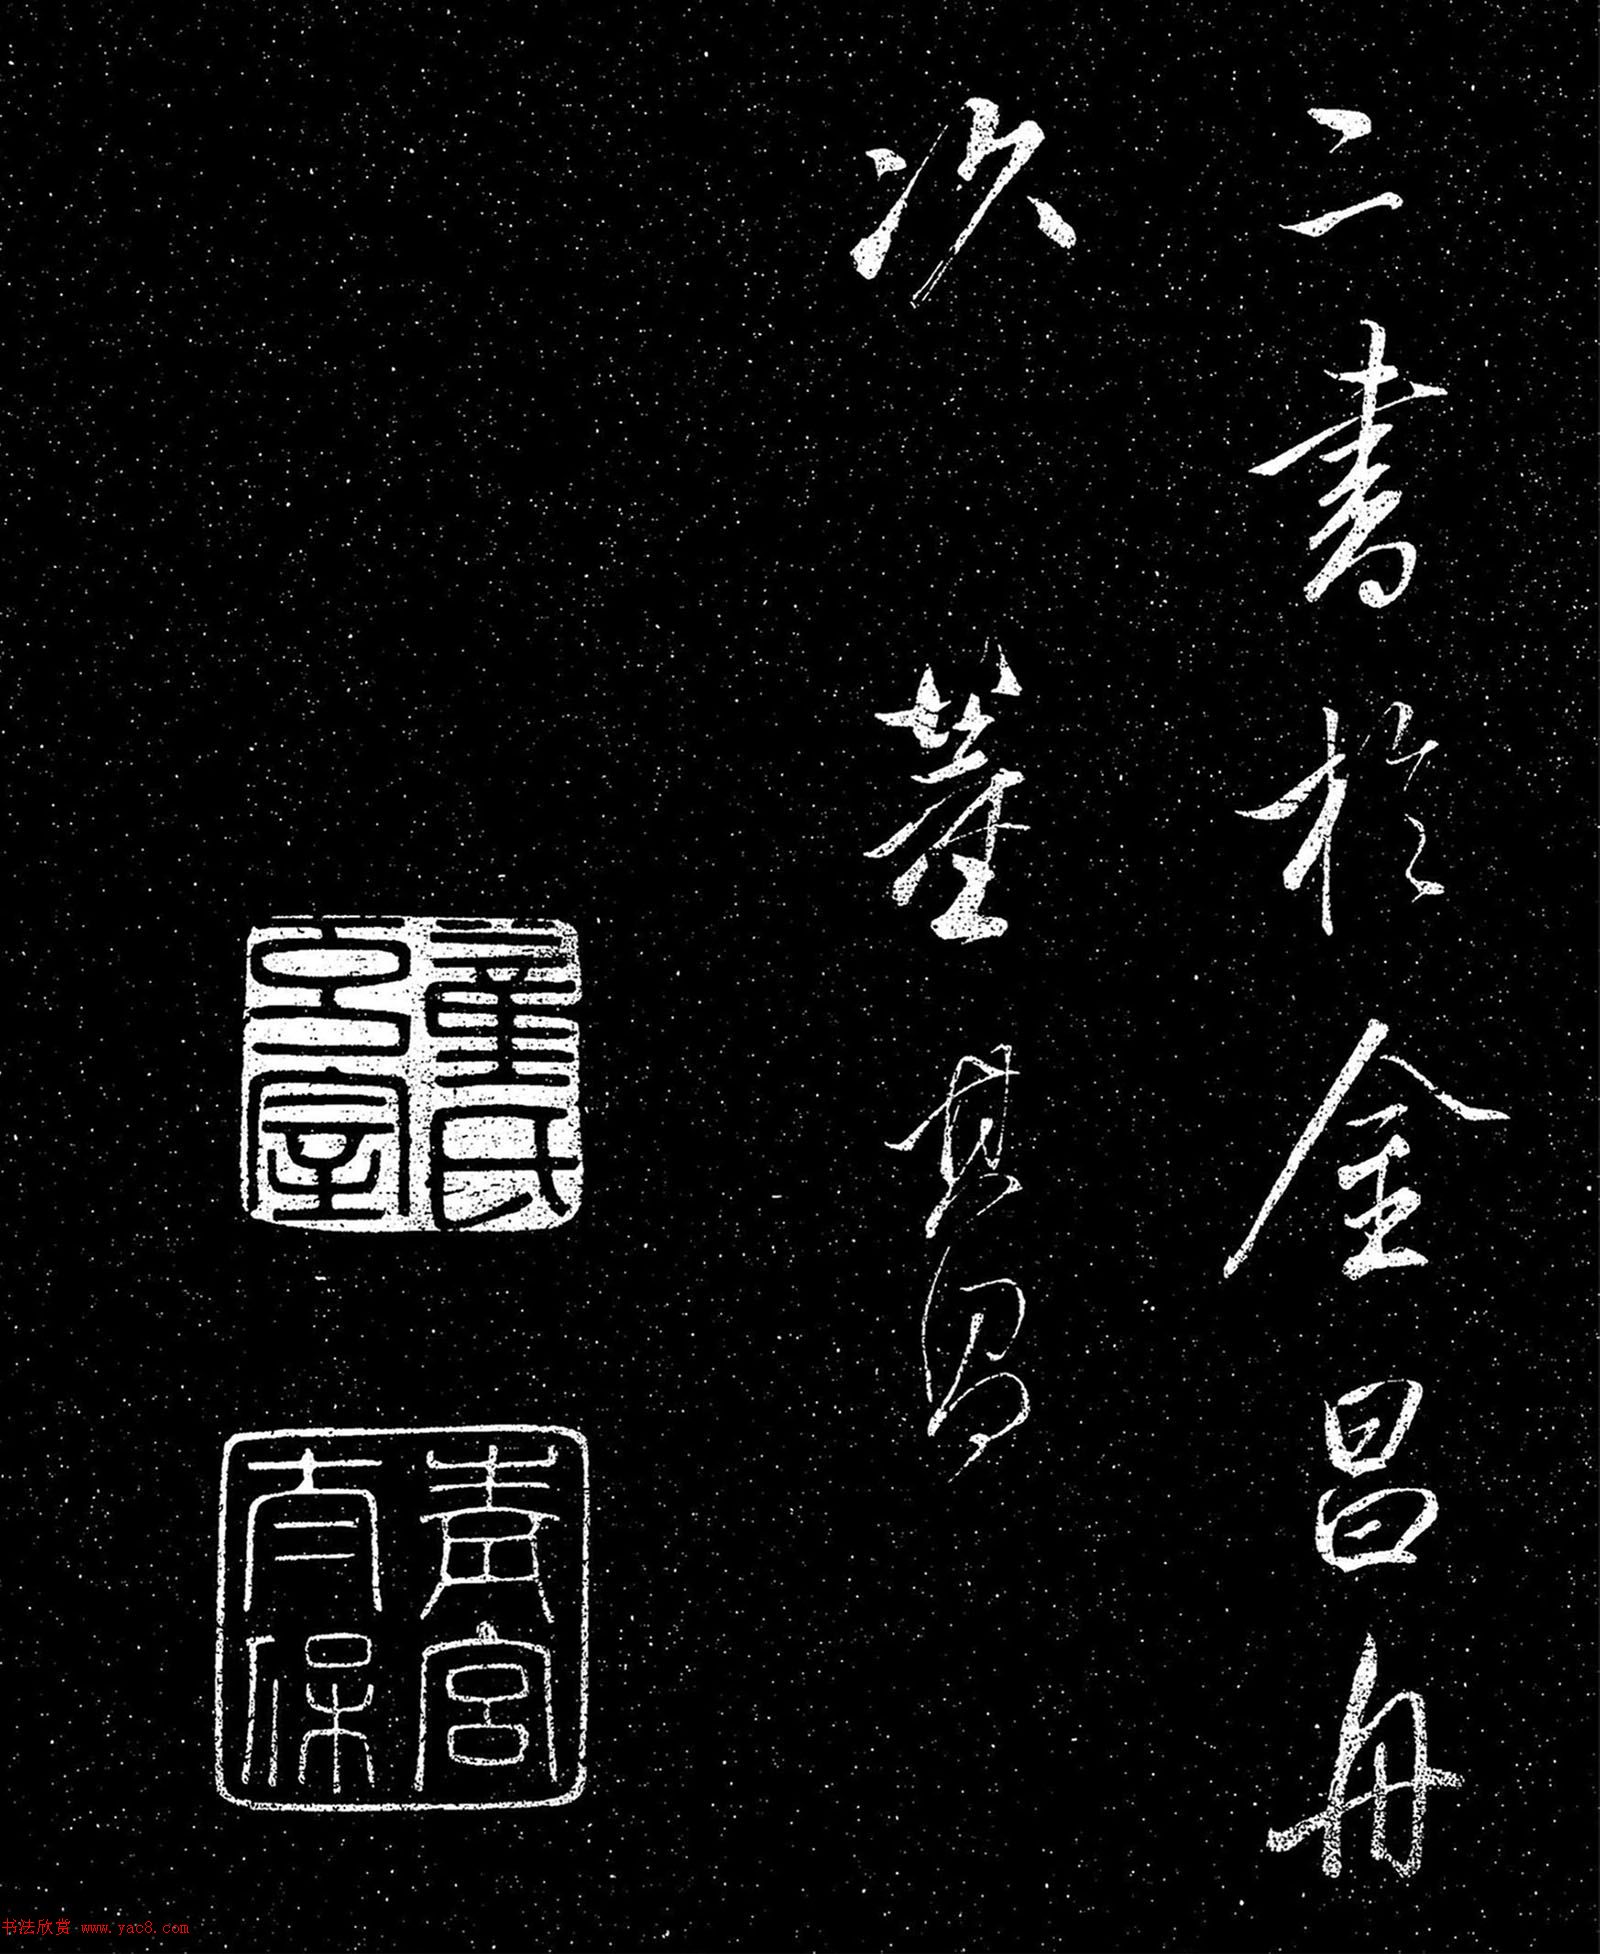 二書於金昌舟
次 董其昌
董氏玄宰
青宮太保
书法欣赏 www.yac8.com